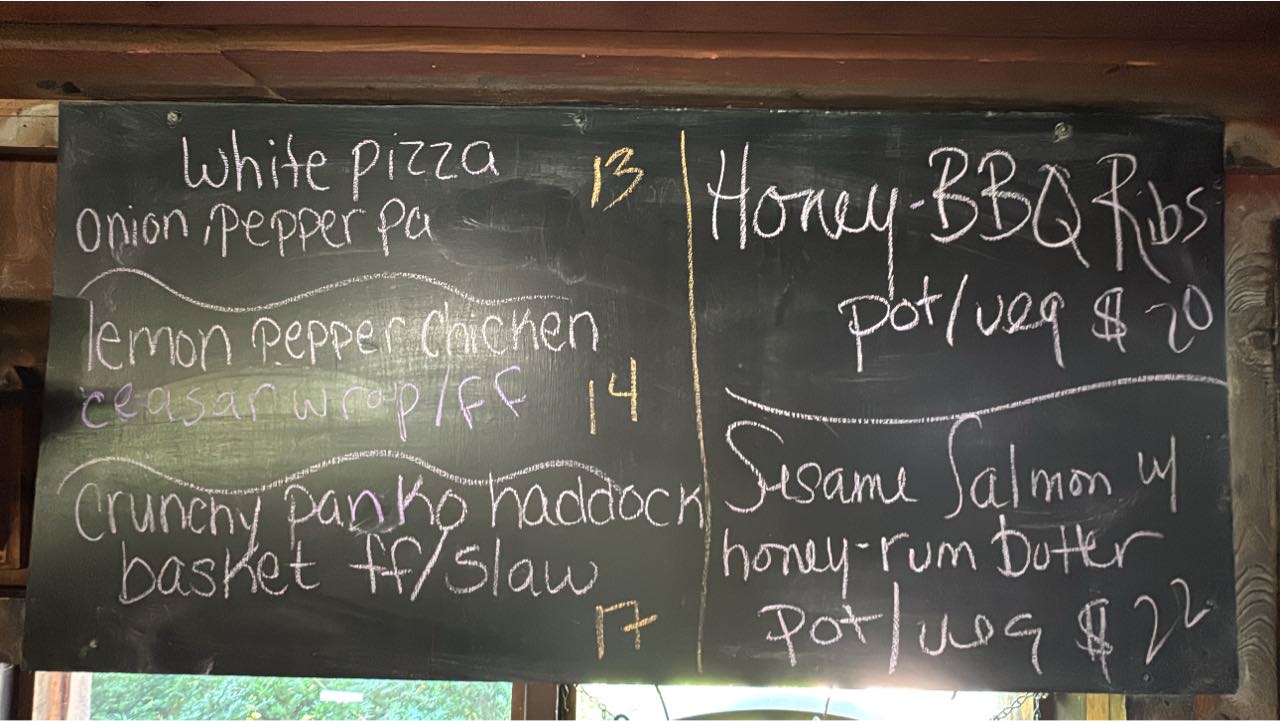 White pizza 13
onion, pepper pa
lemon pepper chicken
ceasar wrap/ff 14
Crunchy panko haddock
basket ff/slaw
17
Honey-BBQ Ribs
pot/veg $20
Sesame Salmon w/
honey-rum butter
pot/veg $22